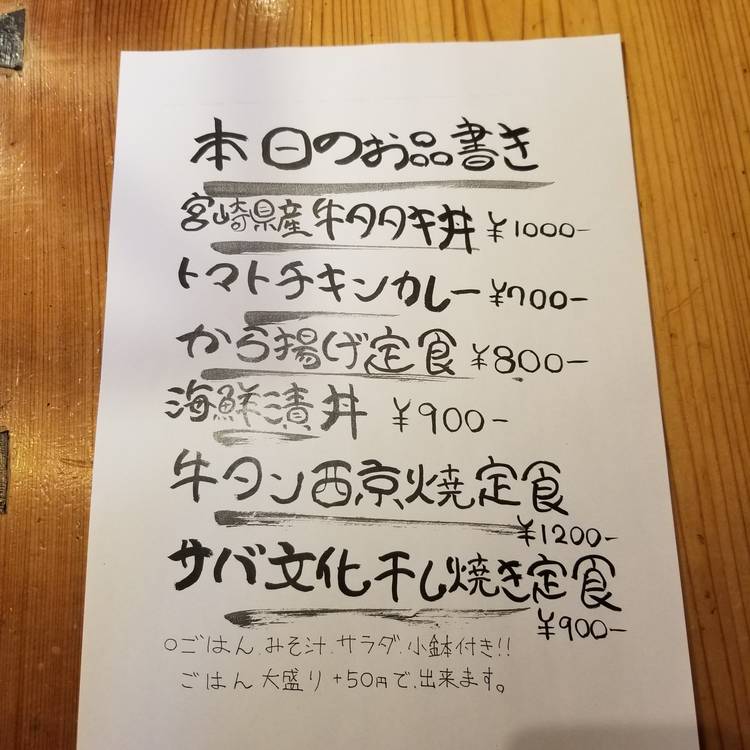 本日のお品書き
宮崎県産牛タタキ丼 ¥1000-
トマトチキンカレー ¥700-
から揚げ定食 ¥800-
海鮮漬丼 ¥900-
牛タン西京焼定食
¥1200-
サバ文化干し焼き定食
¥900-
○ごはん、みそ汁、サラダ、小鉢付き!!
ごはん大盛り+50円で、出来ます。